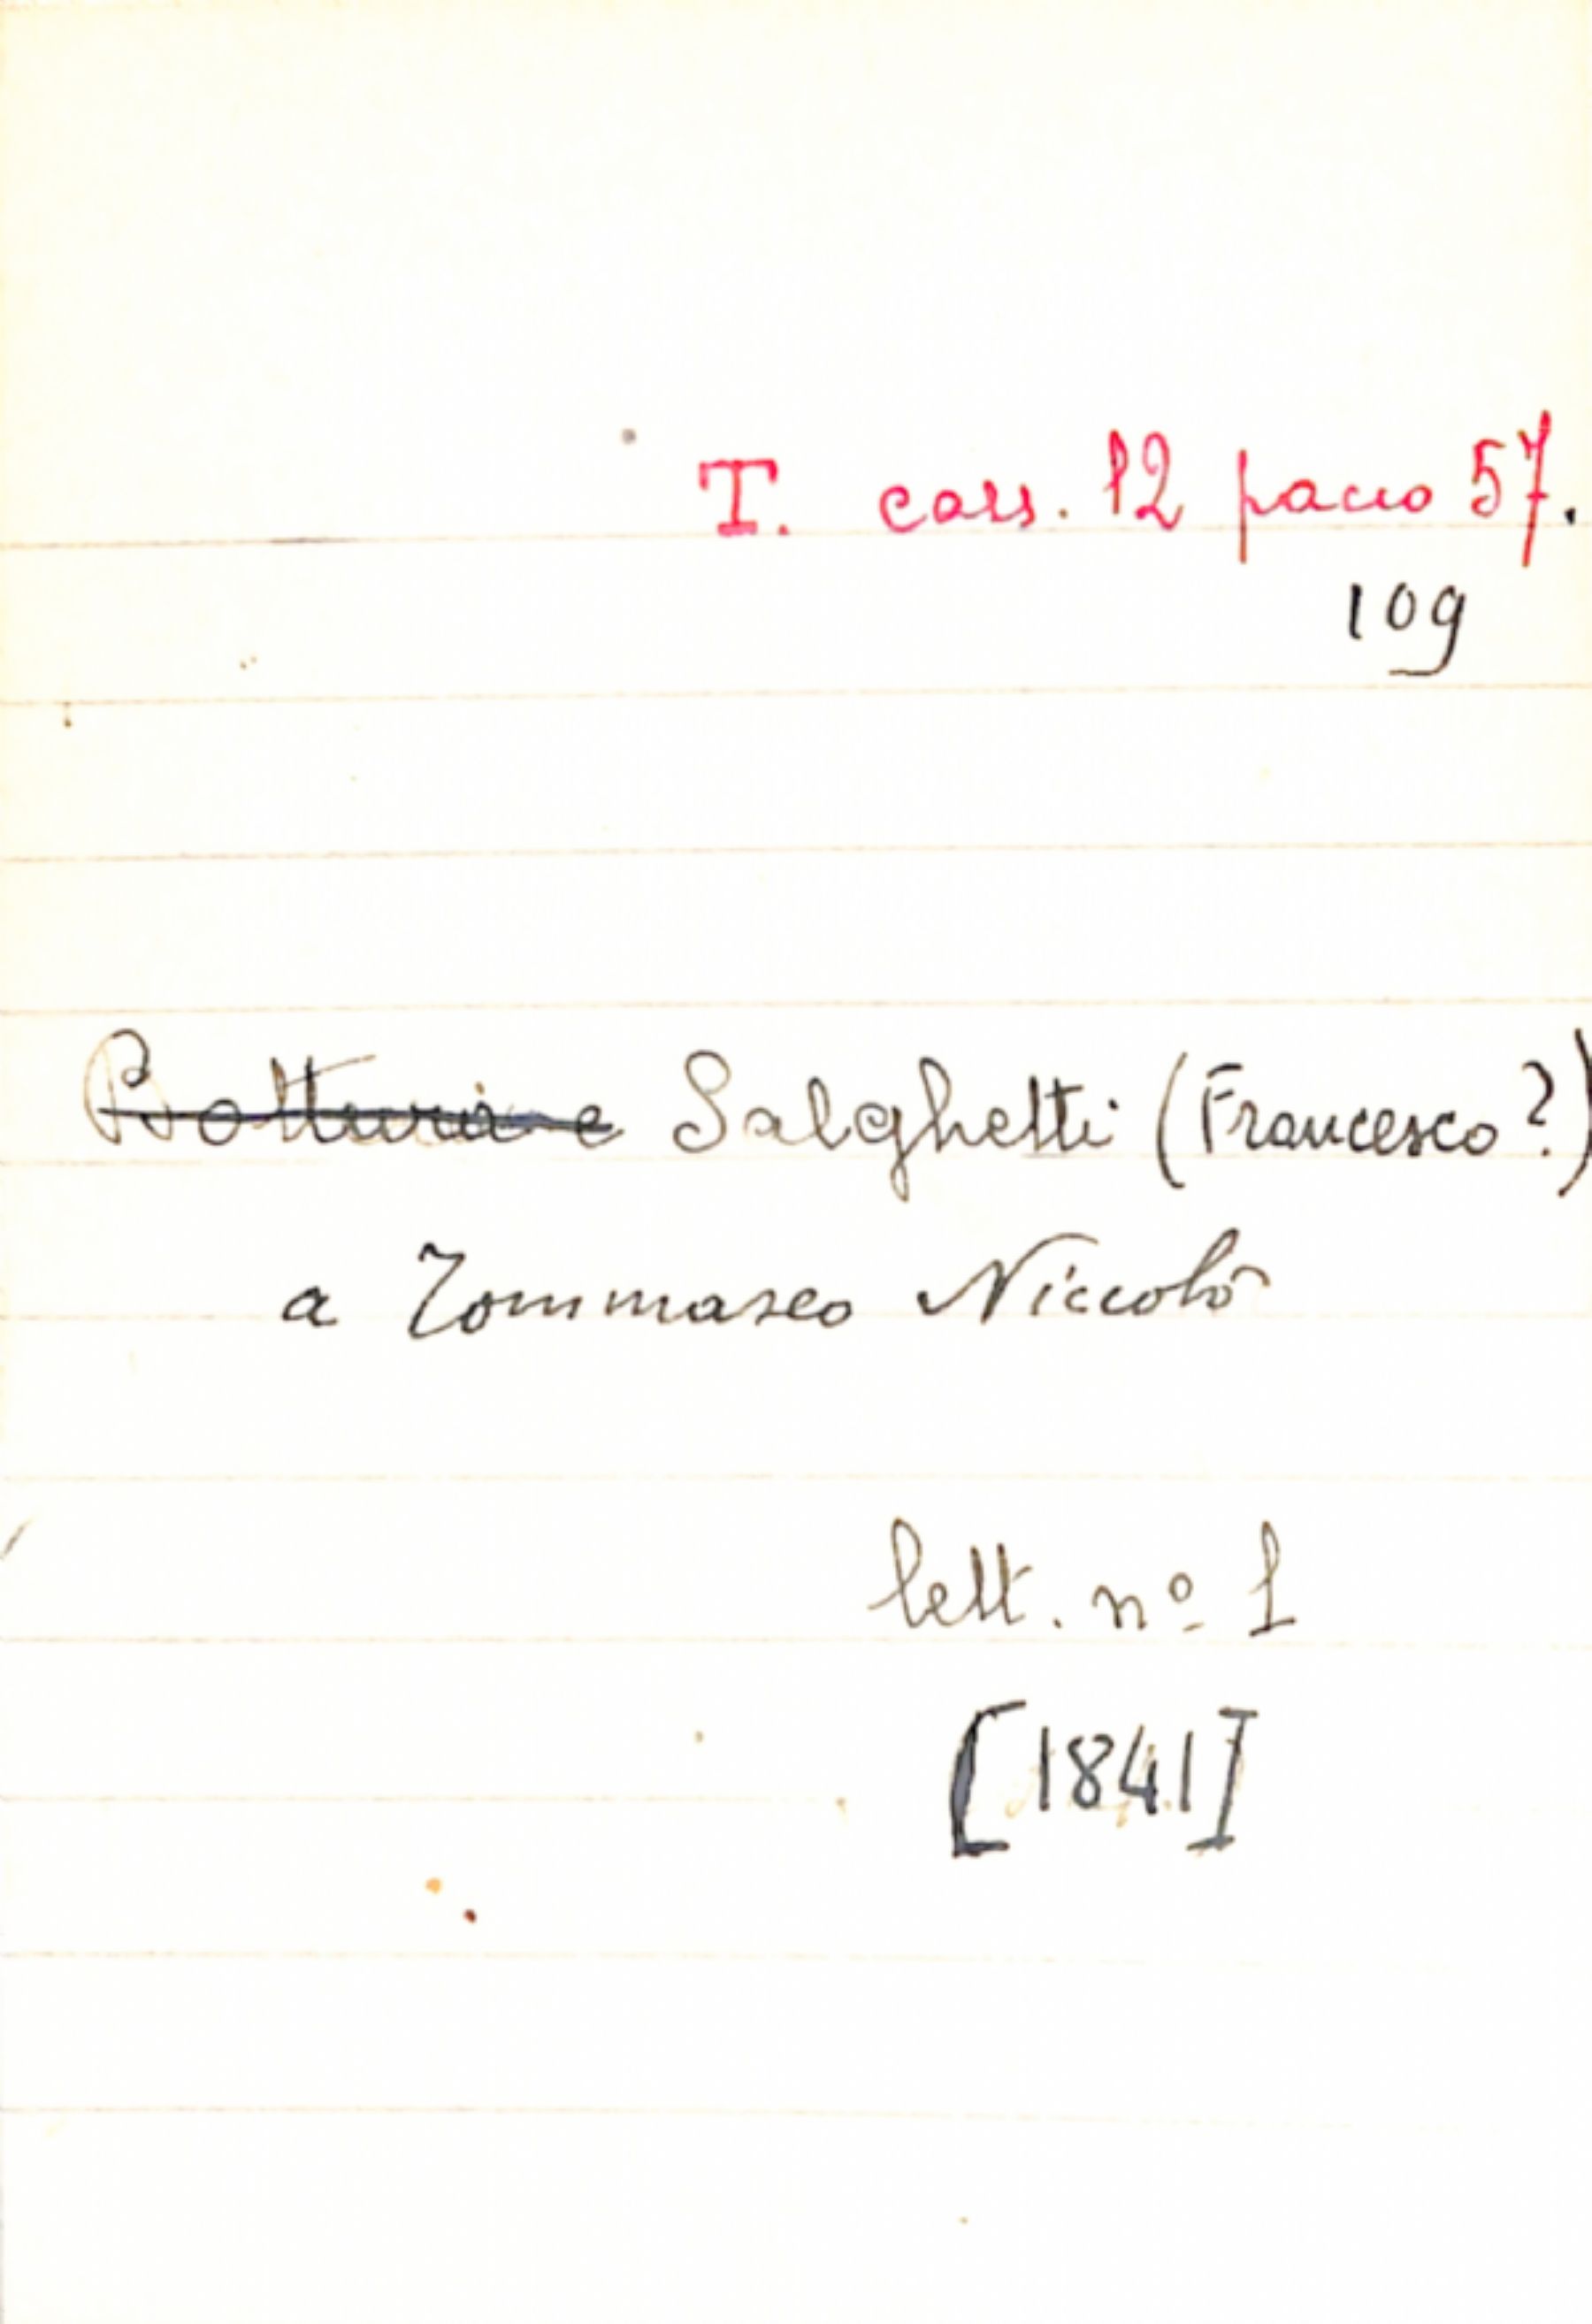 T. cass. 12 pacco 57.
109
Botturi e Salghetti (Francesco?)
a Tommaseo Niccolò
lett. nº 1
[1841]